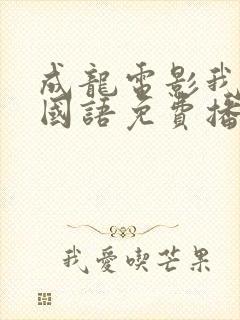 成龍電影我
國語免費播
我愛喫芒果